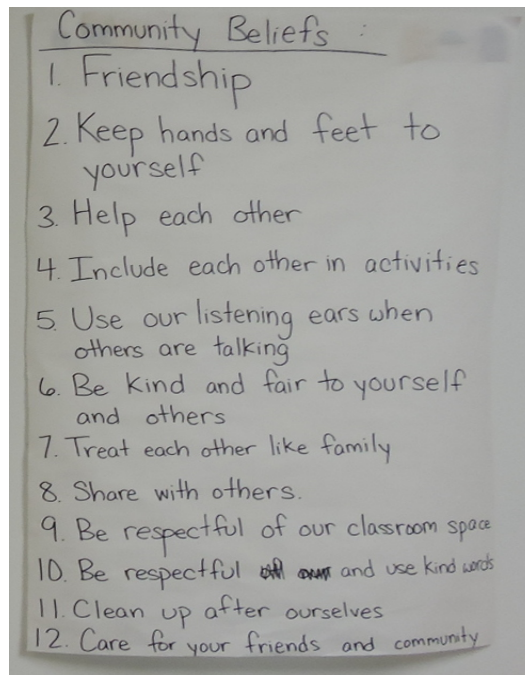 Community Beliefs :
1. Friendship
2. Keep hands and feet to
yourself
3. Help each other
4. Include each other in activities
5. Use our listening ears when
others are talking
6. Be kind and fair to yourself
and others
7. Treat each other like family
8. Share with others.
9. Be respectful of our classroom space
10. Be respectful and use kind words
11. Clean up after ourselves
12. Care for your friends and community